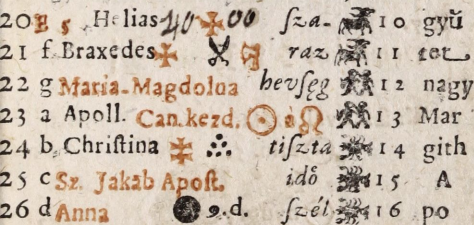 20 E s Helias 40 00 ſza- 10 gyŭ
21 f Braxedes raz 11 tet
22 g Maria-Magdolna hevſęg 12 nagy
23 a Apoll. Can. kezd. ☉ á ♌ 13 Mar
24 b Chriſtina tiſzta 14 gith
25 c Sz. Jakab Apoſt. idő 15 A
26 d Anna 9. d. ſzél 16 po